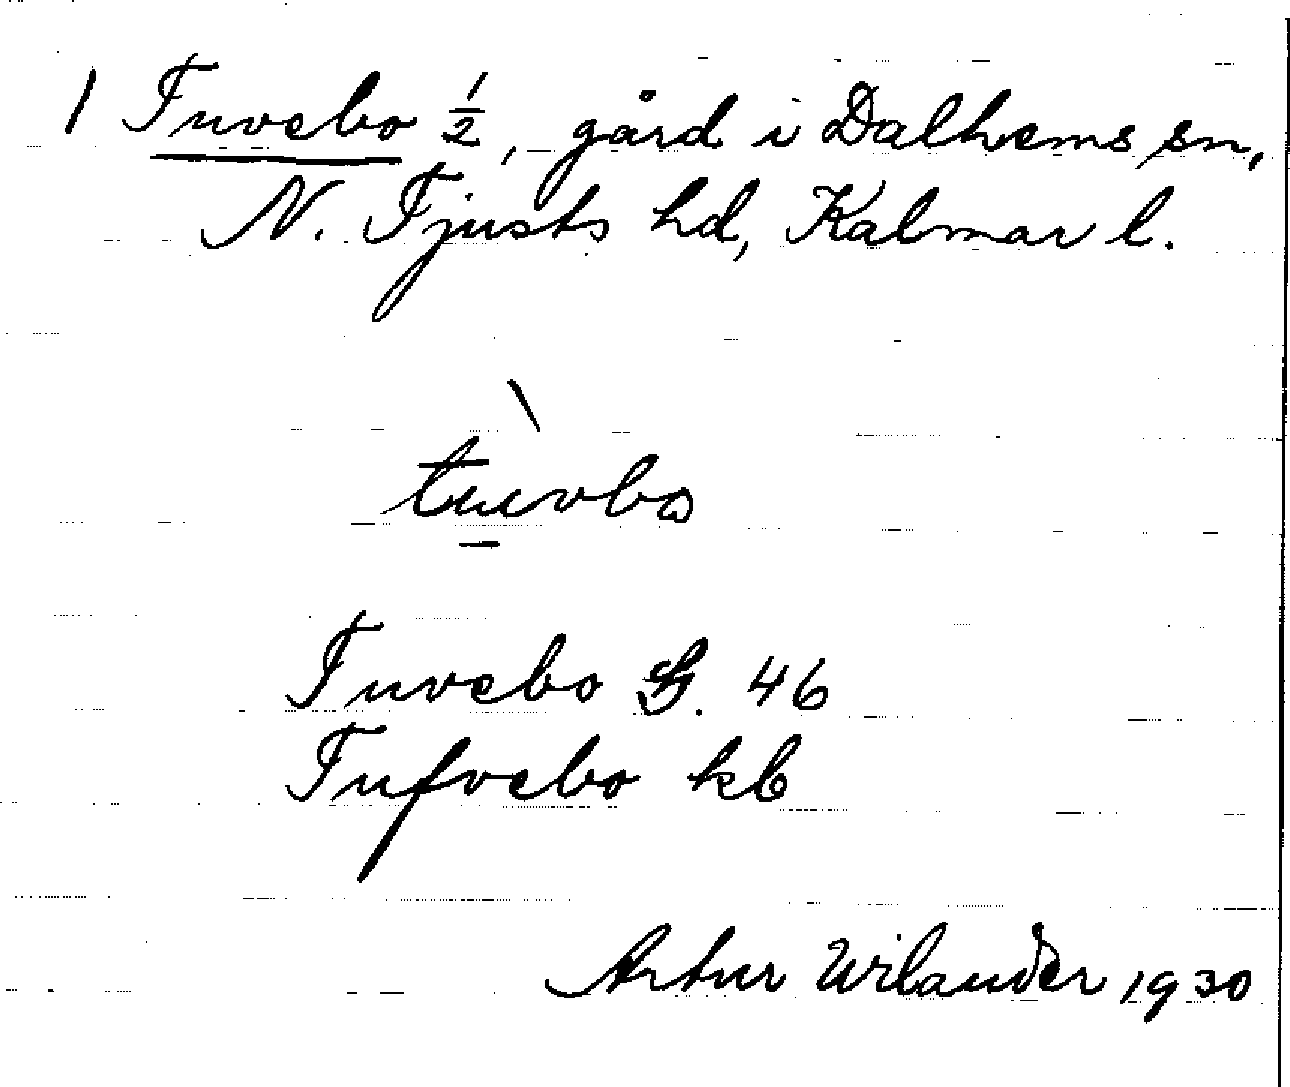 1 Tuvebo ½, gård i Dalhems sn,
N. Tjusts hd, Kalmar l.
tuvbo
Tuvebo G. 46
Tufvebo kb
Artur Wilander 1930